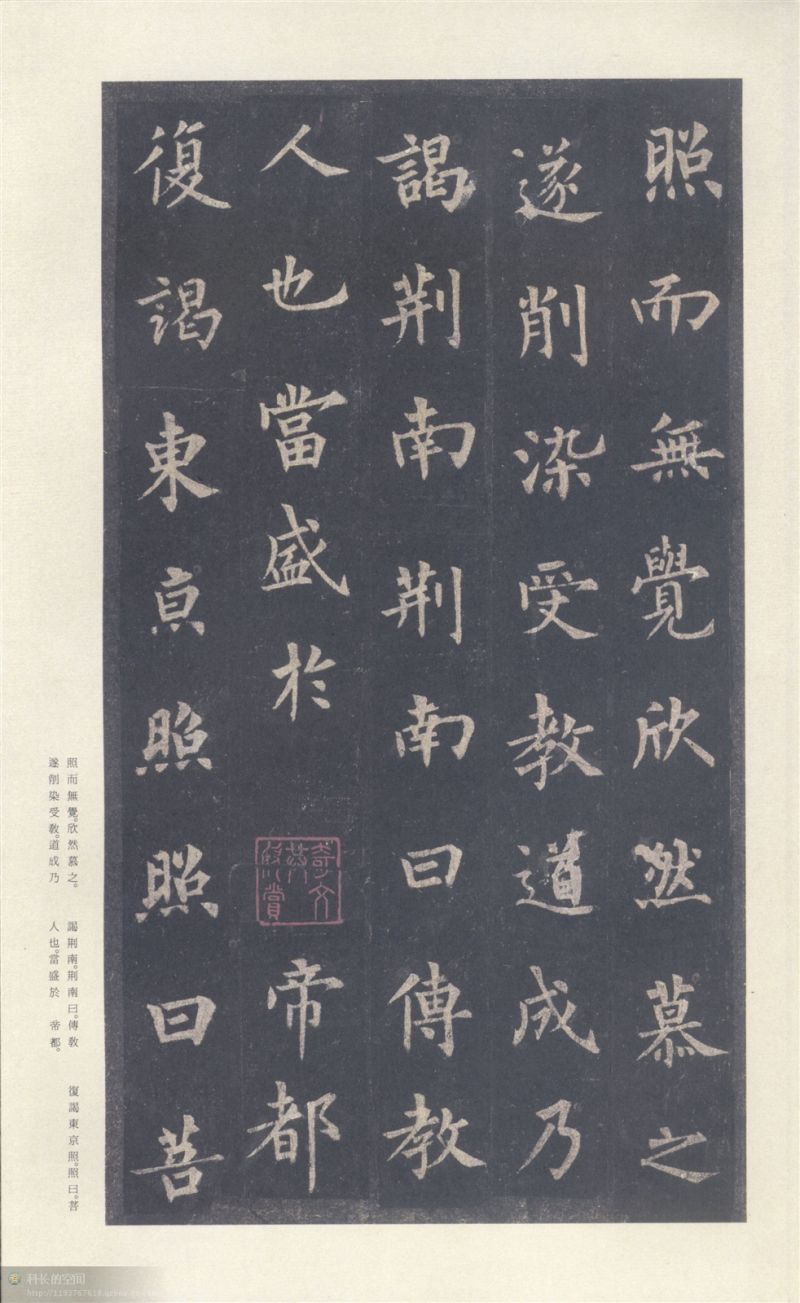 照而無覺欣然慕之
遂削染受教道成乃
謁荆南荆南曰傳教
人也當盛於 帝都
復謁東京照照曰菩
奇文共欣賞
照而無覺。欣然慕之。
遂削染受教。道成乃
謁荆南。荆南曰。傳教
人也。當盛於 帝都。
復謁東京照。照曰。菩
科长的空间